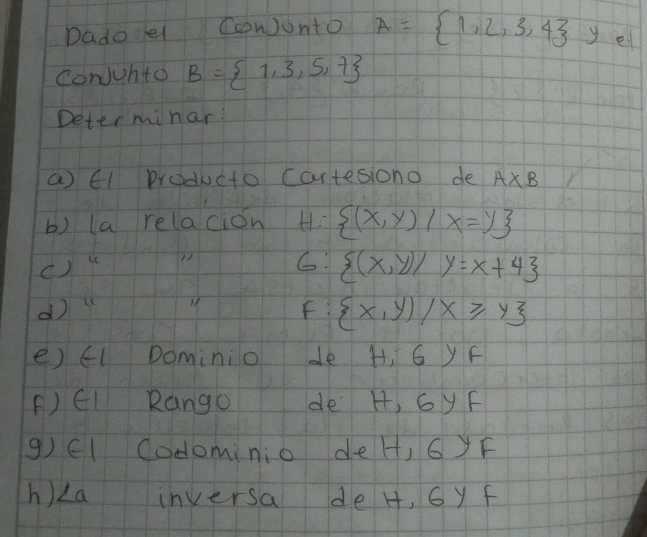 Dado el Conjunto A = {1,2,3,4} y el
Conjunto B = {1,3,5,7}
Determinar:
a) El Producto Cartesiono de AXB
b) la relación H: {(X,Y) / X=Y}
c) " " G: {(X,Y)/ Y=X+4}
d) " " F: {X,Y) / X ≥ Y}
e) El Dominio de H, G y F
f) El Rango de H, G y F
g) El Codominio de H, G y F
h) La inversa de H, G y F